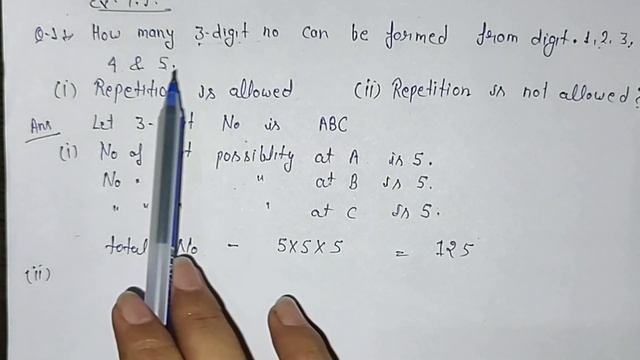 Q-1 How many 3-digit no can be formed from digit. 1, 2, 3,
4 & 5.
(i) Repetition is allowed (ii) Repetition is not allowed?
Ans Let 3- No is ABC
(i) No of possiblity at A is 5.
No " at B is 5.
" " " at C is 5.
total No - 5×5×5 = 125
(ii)